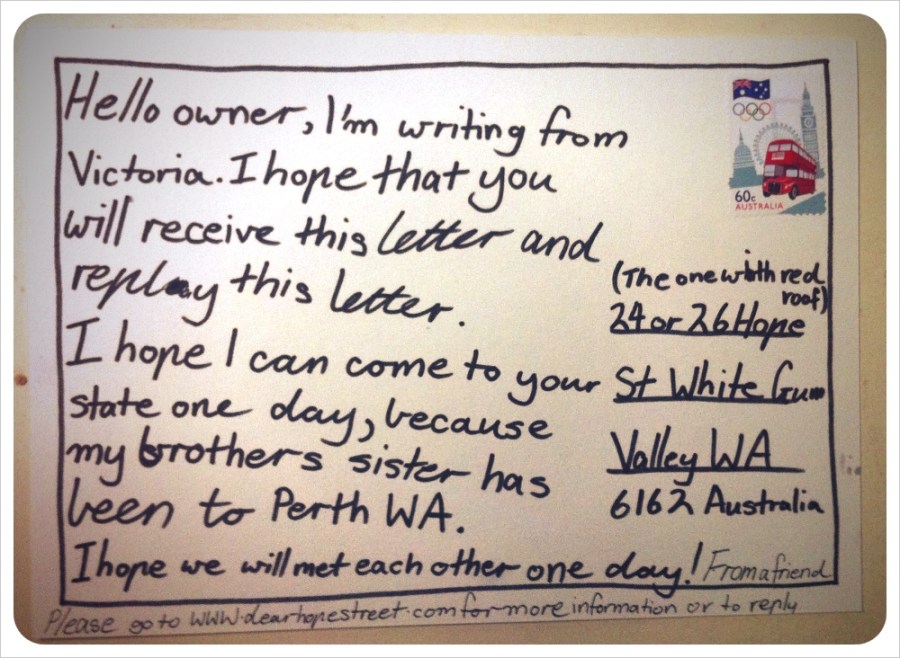 Hello owner, I'm writing from
Victoria. I hope that you
will receive this letter and
replay this letter.
I hope I can come to your
state one day, because
my brothers sister has
been to Perth WA.
I hope we will met each other one day! From a friend
60c
AUSTRALIA
(The one with red
roof)
24 or 26 Hope
St White Gum
Valley WA
6162 Australia
Please go to WWW.dearhopestreet.com for more information or to reply